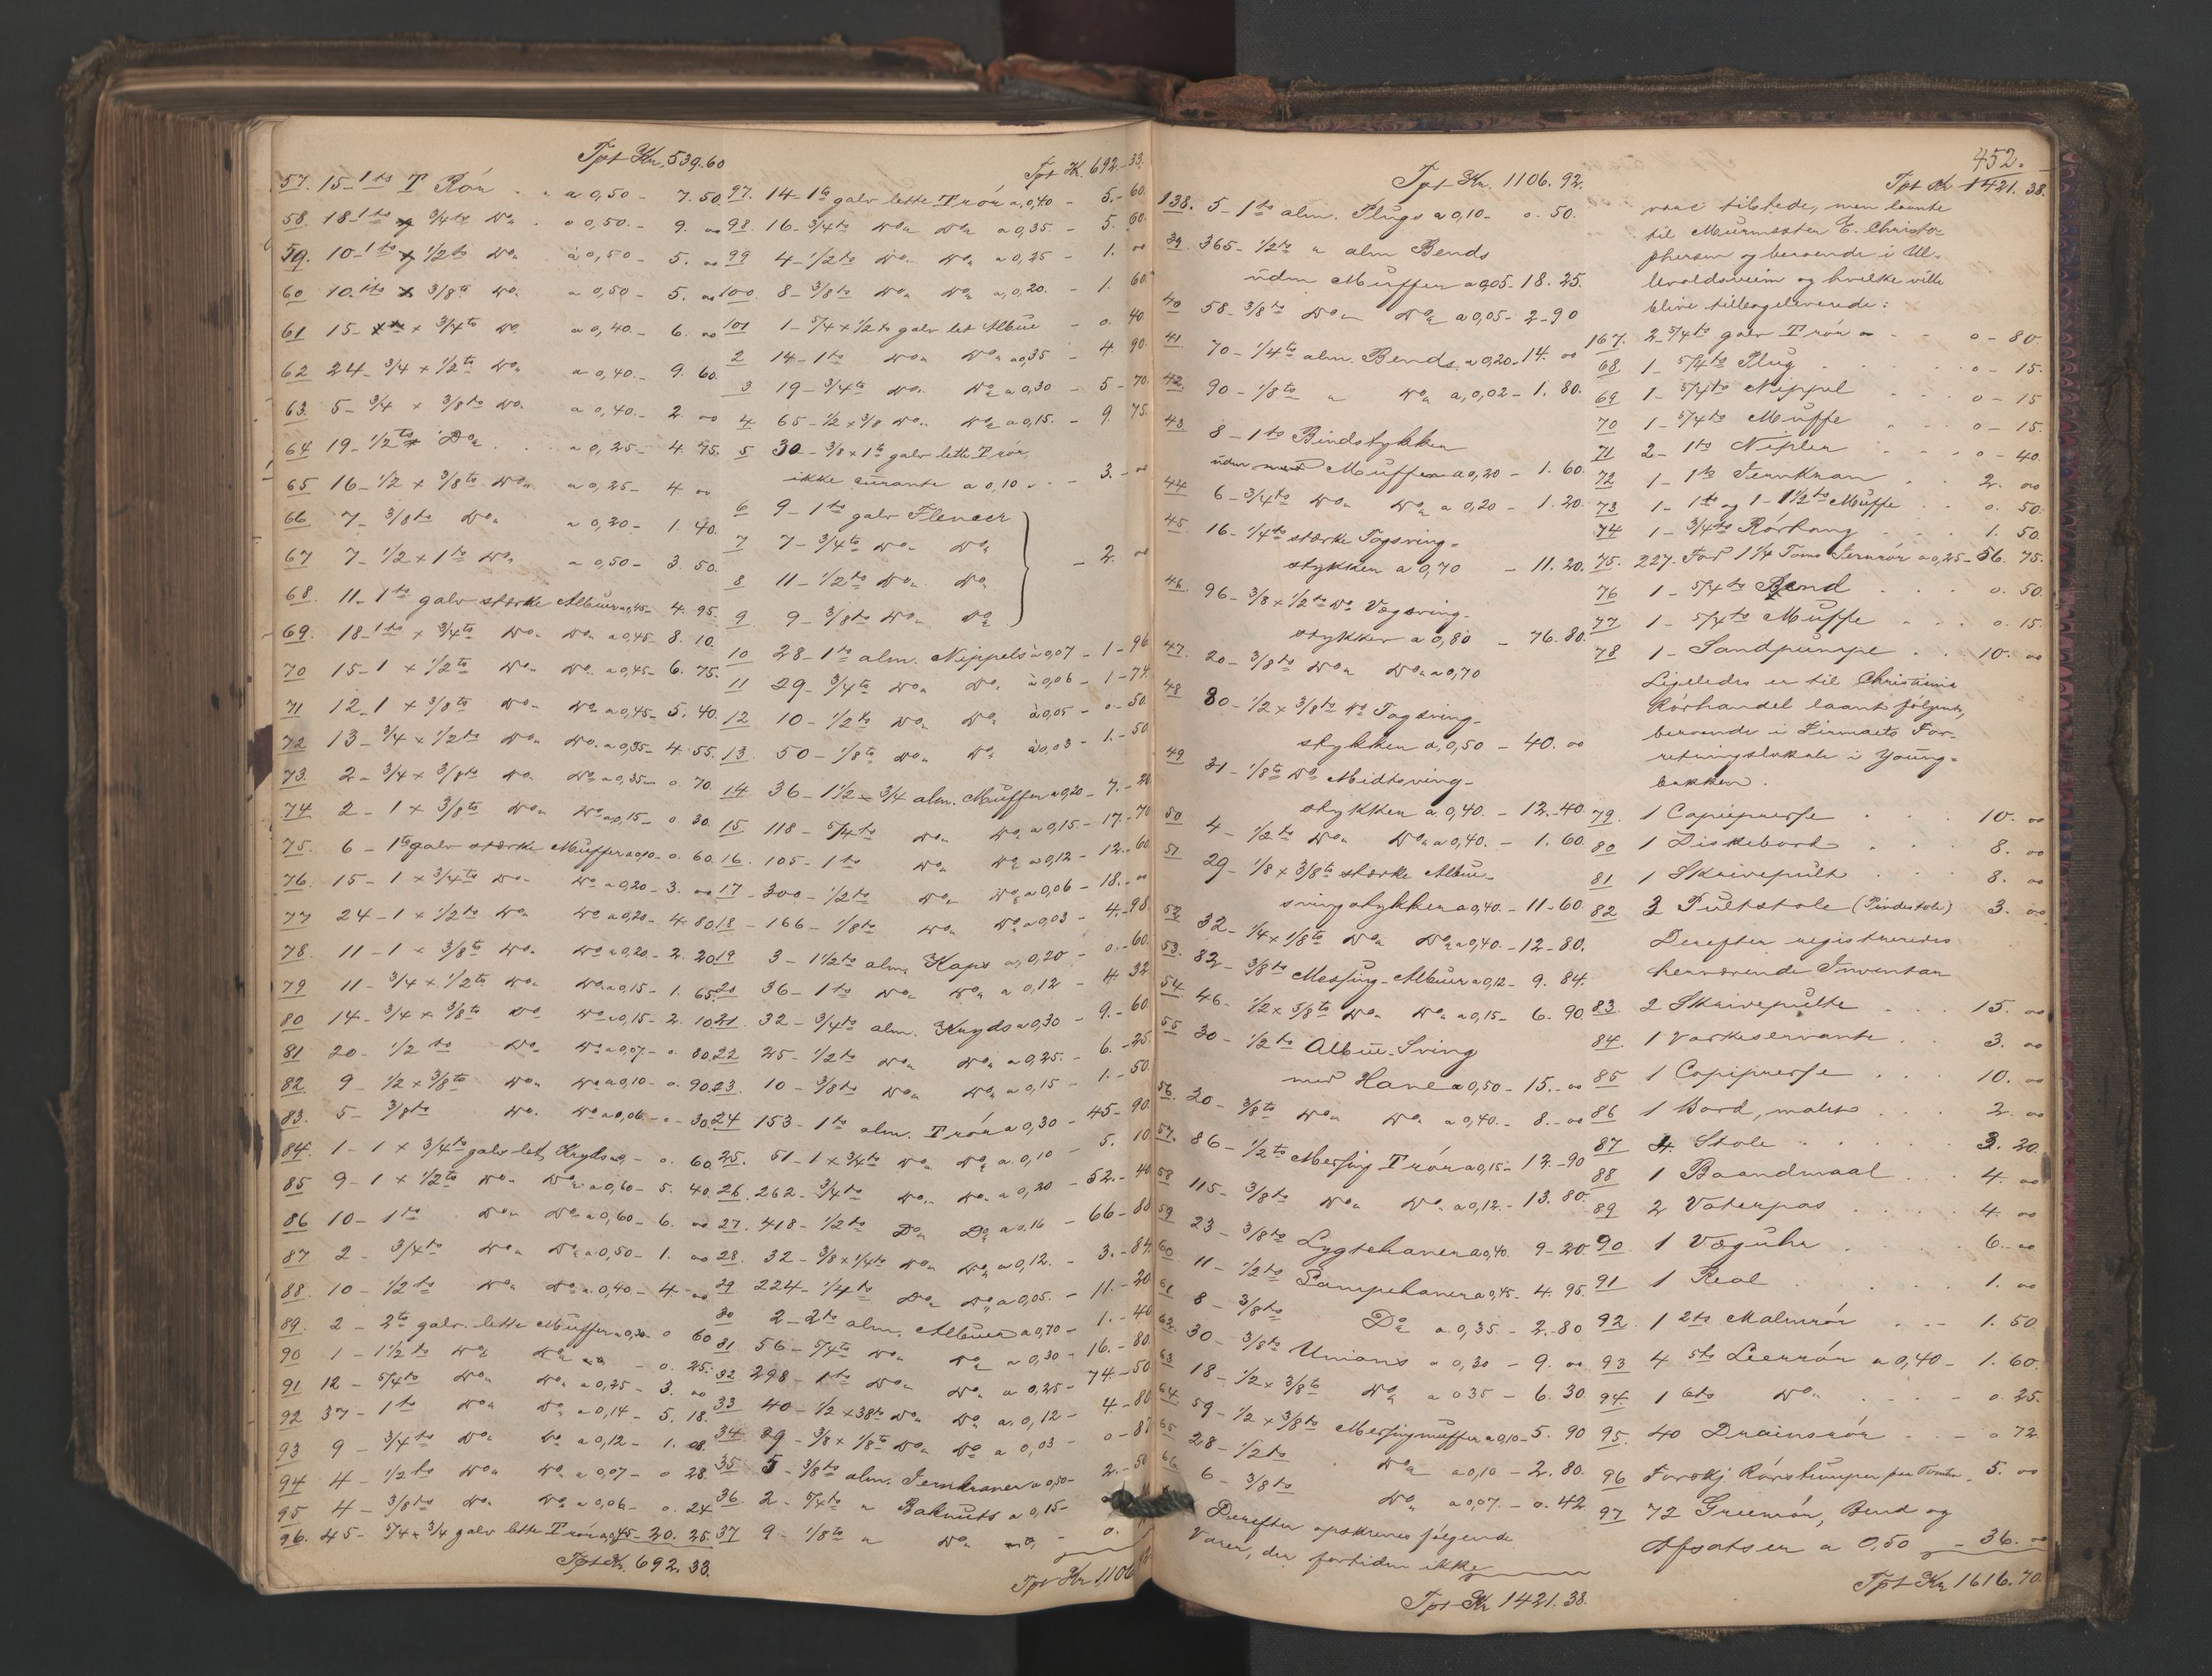 Tpt Kr, 539.60
57. 15 - 1 ts T Rör " a 0,50 - 7.50.
58. 18 - 1 ts x 3/4 ts Do. a 0,50. - 9. oo
59. 10 - 1 ts x 1/2 ts Do. à 0,50 - 5. oo
60 10. 1 ts x 3/8 ts Do. a 0,50 - 5. oo
61 15 - x 3/4 ts Do. a 0,40. - 6. oo
62 24 - 3/4 x 1/2 ts Do. a 0,40. - 9. 60.
63. 5 - 3/4 x 3/8 ts Do. a 0,40. - 2. oo
64 19 - 1/2 ts Do. a 0,25 - 4.75.
65 16 - 1/2 x 3/8 ts Do. a 0,25 - 4 oo
66 7 - 3/8 ts Do. a 0,20 - 1.40.
67 7 - 1/2 x 1 ts Do. a 0,50 - 3.50.
68. 11 - 1 ts galv stærke Albuer a 0,45 - 4.95.
69. 18 - 1 ts x 3/4 ts Do. Do. a 0,45 - 8.10.
70 15 - 1 x 1/2 ts Do. Do. a 0,45 - 6.75.
71 12 - 1 x 3/8 ts Do. Do. a 0,45 - 5.40.
72 13 - 3/4 x 1/2 ts Do. Do. a 0,35 - 4.55.
73. 2 - 3/4 x 3/8 ts Do. Do. a 0,35 - 0.70.
74 2 - 1 x 3/8 ts Do. Do. a 0,15 - 0.30.
75. 6 - 1 ts galv stærke Muffer a 0,10 - 0.60.
76. 15 - 1 x 3/4 ts Do. Do. a 0,20 - 3. oo
77 24 - 1 x 1/2 ts Do. Do. a 0,20 - 4.80.
78. 11 - 1 x 3/8 ts Do. Do. a 0,20 - 2.20
79 11 - 3/4 x 1/2 ts Do. Do. a 0,15 - 1.65.
80 14 - 3/4 x 3/8 ts Do. Do. a 0,15 - 2.10.
81 20 - 1/2 ts Do. Do. a 0,07 - 0.80.
82 9 - 1/2 x 3/8 ts Do. Do. a 0,10 - 0.90.
83. 5 - 3/8 ts Do. Do. a 0,06 - 0 - 30.
84. 1 - 1 x 3/4 ts galv let, Kryds - 0.60.
85 9 - 1 x 1/2 ts Do. Do. a 0,60 - 5.40.
86 10 - 1 ts Do. Do. a 0,60 - 6. oo
87 2 - 3/4 ts Do. Do. a 0,50 - 1. oo
88. 10 - 1/2 ts Do. Do. a 0,40 - 4. oo
89. 2 - 2 ts galv. lette Muffer a 0,30 0 60
90 1 - 1 1/2 ts Do. Do. - 0.25.
91 12 - 5/4 ts Do. Do. a 0,25 - 3. oo
92 37 - 1 ts Do. Do. a 0,14 - 5.18.
93 9 - 3/4 ts Do. Do. a 0,12 - 1.08.
94 4 - 1/2 ts Do. Do. a 0,07 - 0 28.
95 4 - 3/8 ts Do. Do. a 0,06 - 0.24
96. 45 - 5/4 x 3/4 galv lette T rör a 0,45 - 20.25.
Tpt Kr. 692.33.
Tpt Kr. 692 - 33.
97. 14 - 1 ts galv lette T rör a 0,40 - 5. - 60.
98. 16 - 3/4 ts Do. Do. a 0,35 - 5.60.
99 4 - 1/2 ts Do. Do. a 0,25 - 1. oo
100. 8 - 3/8 ts Do. Do. a 0,20. - 1.60.
101 1 - 5/4 x 1/2 ts galv let Albue - 0.40.
2 14 - 1 ts Do. Do. a 0,35 - 4.90.
3 19 - 3/4 ts Do. Do. a 0,30 - 5 - 70.
4 65 - 1/2 x 3/8 Do. Do. a 0,15. - 9.75.
5 30 - 3/8 x 1 ts galv lette T rör,
ikke curante a 0,10 - 3. - oo
6 9 - 1 ts galv Flencer
7 7 - 3/4 ts Do. Do.
8 11 - 1/2 ts Do. Do. - 2. oo
9 9 - 3/8 ts Do. Do.
10 28 - 1 ts alm. Nippels a 0,07 - 1 - 96
11 29 - 3/4 ts Do. Do. a 0,06 - 1 - 74.
12 10 - 1/2 ts Do. Do. à 0,05 - 0 - 50.
13 50 - 1/8 ts Do. Do. à 0,03 - 1. - 50
14 36 - 1 1/2 x 3/4 alm. Muffer a 0,20 - 7. - 20
15 118 - 5/4 ts Do. Do. a 0,15. - 17. - 70
16. 105 - 1 ts Do. Do. a 0,12 - 12. - 60.
17 - 300 - 1/2 ts Do. Do. a 0,06 - 18. - oo
18 - 166 - 1/8 ts Do. Do. a 0,03 - 4. - 98.
19 3 - 1 1/2 ts alm. Kaps a 0,20 - 0. - 60.
20 36 - 1 ts Do. Do. a 0,12 - 4 32
21. 32 - 3/4 ts alm. Kryds a 0,30 - 9. - 60
22 25 - 1/2 ts Do. Do. a 0,25. - 6. - 25.
23. 10 - 3/8 ts Do. Do. a 0,15 - 1. - 50.
24 153 - 1 ts alm. T rör a 0,30 - 45 - 90.
25. 51 - 1 x 3/4 ts Do. Do. a 0,10 - 5.10
26. 262 - 3/4 ts Do. Do. a 0,20 - 52. - 40
27. 418 - 1/2 ts Do. Do. a 0,16 - 66 - 88
28. 32 - 3/8 x 1/4 ts Do. Do. a 0,12. - 3. - 84.
29 224 - 1/4 ts Do. Do. a 0,05. - 11. - 20
30 2 - 2 ts alm. Albuer a 0,70 - 1. - 40
31 56 - 5/4 ts Do. Do. a 0,30 - 16. - 80
32 298 - 1 ts Do. Do. a 0,25 - 74. - 50
33 40 - 1/2 x 3/8 ts Do. Do. a. 0,12 - 4. - 80
34 29 - 3/8 x 1/8 ts Do. Do. a 0,03 - 0 - 87
35 5 - 3/8 ts alm. Jernkraner a 0,50 - 2. - 50
36. 2 - 5/4 ts " Baknuts a 0,15 -
37 9 - 1/8 ts " Do. - 0.
Tpt Kr 1106
452.
Tpt Kr. 1106.92.
138. 5 - 1 ts alm. Plugs a 0,10 - 0.50.
39 365 - 1/2 ts " alm Bends
uden Muffer a 0,05 - 18.25.
40 58 - 3/8 ts Do. Do. a 0,05 - 2 - 90
41 70 - 1/4 ts alm. Bends a 0,20 - 14. oo
42. 90 - 1/8 ts " Do. a 0,02 - 1.80.
43 8 - 1 ts Bindstykker
uden Muffer a 0,20 - 1.60.
44 6 - 3/4 ts Do. Do. a 0,20 - 1.20.
45 16 - 1/4 ts stærke Tagsving-
stykker a 0,70 - 11.20.
46. 96 - 3/8 x 1/2 ts Do Vægsving-
stykker a 0,80 - 76.80.
47. 20 - 3/8 ts Do. Do. a 0,70
48 80 - 1/2 x 3/8 ts Do Tagsving-
stykker a 0,50 - 40. oo
49 31 - 1/8 ts Do Midtsving-
stykker a. 0,40. - 12. 40.
50 4 - 1/2 ts Do. Do. a 0,40. - 1.60.
51 29 - 1/8 x 3/8 ts stærke Albue-
svingstykker a 0,40. - 11 - 60.
52. 32 - 1/4 x 1/8 ts Do. Do. a 0,40. - 12 - 80.
53. 82 - 3/8 ts Messing-Albuer a 0,12 - 9.84.
54 46 - 1/2 x 3/8 ts Do. Do. a 0,15 - 6.90
55 30 - 1/2 ts Albue-Sving
med Hane a 0,50 - 15. - oo
56. 20 - 3/8 ts Do. Do. a 0,40. - 8. - oo
57. 86 - 1/2 ts Messing T rör a 0,15 - 12. - 90
58 115 - 3/8 ts Do. Do. a 0,12. - 13.80.
59 23 - 3/8 ts Lygtehaner a 0,40. 9 - 20
60 11 - 1/2 ts Lampehaner a 0,45 - 4.95.
61 8 - 3/8 ts Do. a 0,35 - 2.80
62. 30 - 3/8 ts Unions a 0,30 - 9. oo
63 18 - 1/2 x 3/8 ts Do. a 0 35 - 6.30.
64 59 - 1/2 x 3/8 ts Messingmuffer a 0,10 - 5.90
65 28 - 1/2 ts Do. a 0,10 - 2.80.
66 6 - 3/8 ts Do. a 0,07. - 0.42
Derefter opskreves følgende
Varer, der fortiden ikke
Tpt Kr 1421.38.
Tpt Kr 1421.38.
vare tilstede, men laante
til Murmester E. Christo-
phersen og beroende i Ul-
levoldsveien og hvilke vilde
blive tilbageleverede:
167. 2 5/4 ts galv T rör " - 0 - 80.
68. 1 - 5/4 ts Plug 0 - 15.
69 1 - 5/4 ts Nippel 0 - 15
70 1 - 5/4 ts Muffe 0 - 15.
71 2 - 1 ts Nipler 0 - 40.
72 1 - 1 ts Jernkran 2. oo
73 1 - 1 ts og 1 - 1 1/2 ts Muffe 0.50.
74 1 - 3/4 ts Rörtang 1.50.
75. 227. Fod 1 1/4 Toms Jernrör a 0,25 - 56.75.
76 1 - 5/4 ts Bend 0.50.
77 1 - 5/4 ts Muffe 0.15.
78 1 - Sandpumpe 10. oo
Ligeledes er til Christiania
Rørhandel laant følgende,
beroende i Firmaets For-
retningslokale i Young-
bakken.
79. 1 Copiepresse 10. oo
80 1 Diskebord 8. oo
81 1 Skrivepult 8. oo
82 3 Pultstole (Pindestole) 3. oo
Derefter registreredes
herværende Inventar
83. 2 Skrivepulte 15. oo
84. 1 Vaskeservante 3. oo
85 1 Copipresse 10. oo
86 1 Bord, malet 2. oo
87 4 Stole 3.20.
88 1 Baandmaal 4. oo
89 2 Vaterpas 4. oo
90. 1 Væguhr 6. - oo
91 1 Reol 1. oo
92. 1 2 ts Malmrör 1.50
93 4 5 ts Leerrör a 0,40 - 1.60.
94. 1 6 ts Do. - 0.25.
95. 40 Drainsrör - 0 72.
96 Forskj. Rörstumper paa Tomten 5. oo
97 72 Greenrör, Bend og
Afsatser a 0,50 - 36. oo
Tpt Kr 1616.70.